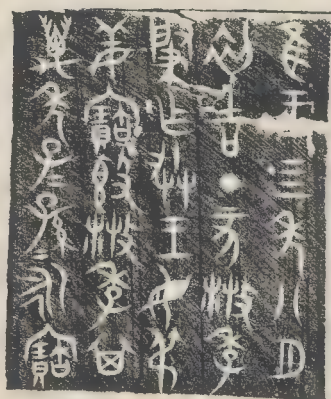 隹王亖年八月
初吉丁亥散季
肇乍朕王母弔
姜寶𣪘散季其
萬年子=孫=永寶